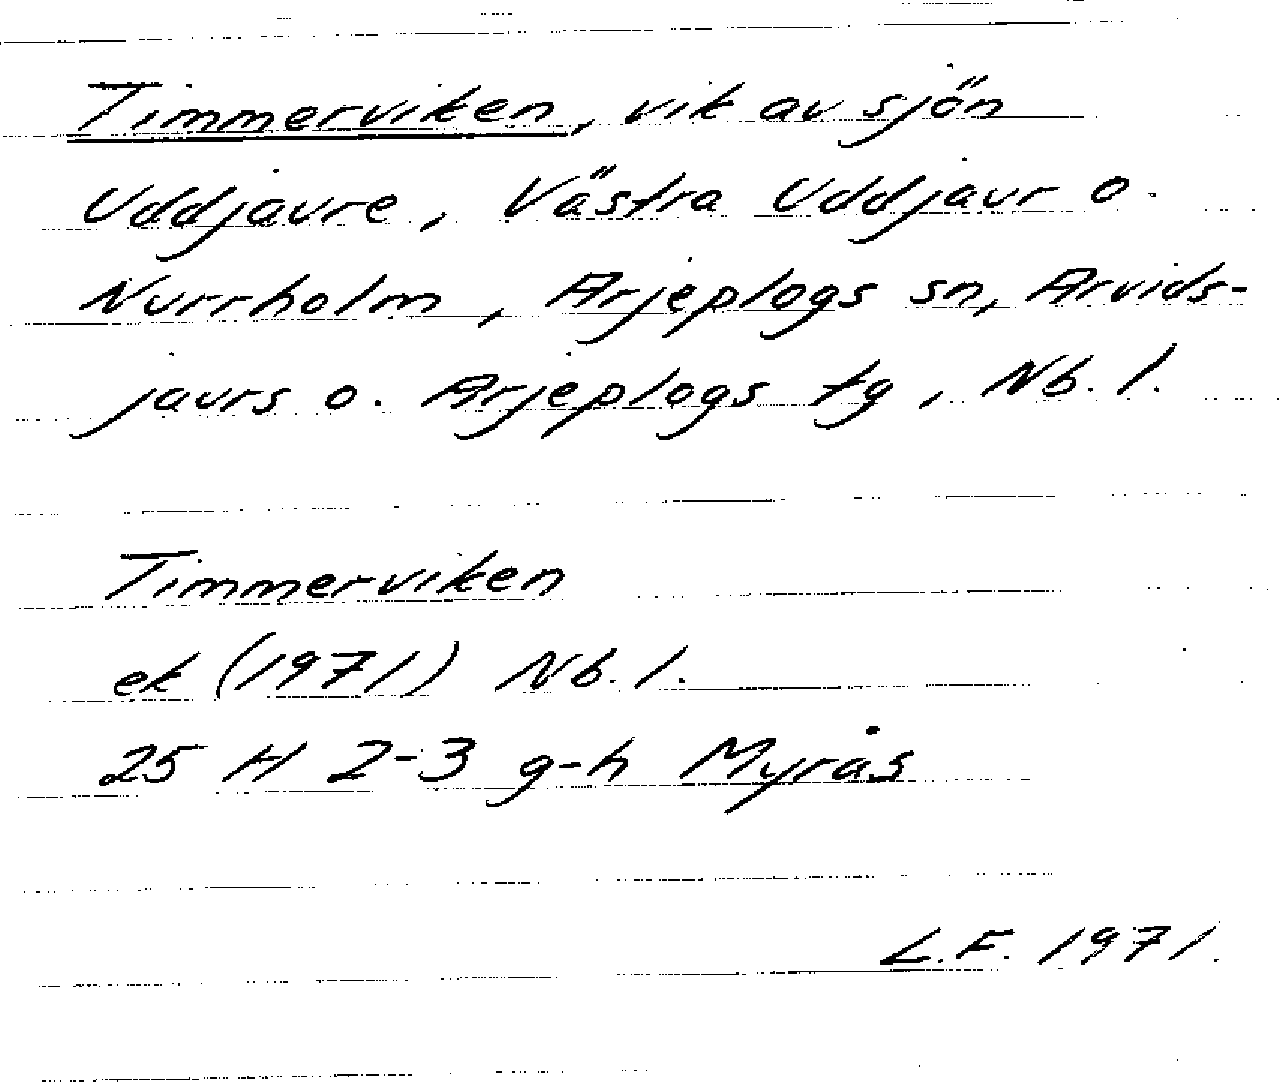 Timmerviken, vik av sjön
Uddjaure, Västra Uddjaur o.
Nurrholm, Arjeplogs sn, Arvids-
jaurs o. Arjeplogs tg, Nb. l.
Timmerviken
ek (1971) Nb. l.
25 H 2-3 g-h Myrås
L.F. 1971.